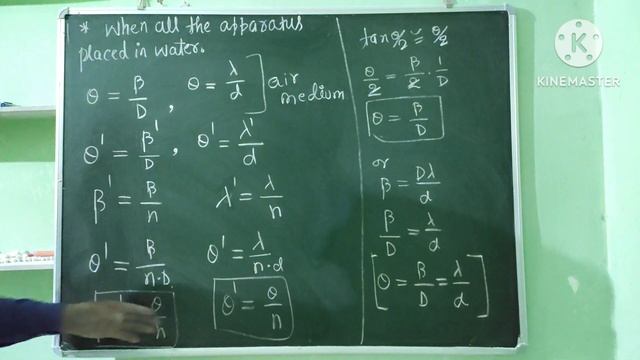 * When all the apparatus
placed in water.
θ = β/D , θ = λ/d ] air medium
θ' = β'/D , θ' = λ'/d
β' = β/n λ' = λ/n
θ' = β/n·D θ' = λ/n·d
θ/n θ' = θ/n
tan θ/2 ≅ θ/2
θ/2 = β/2 · 1/D
θ = β/D
or
β = Dλ/d
β/D = λ/d
[ θ = β/D = λ/d ]
KINEMASTER